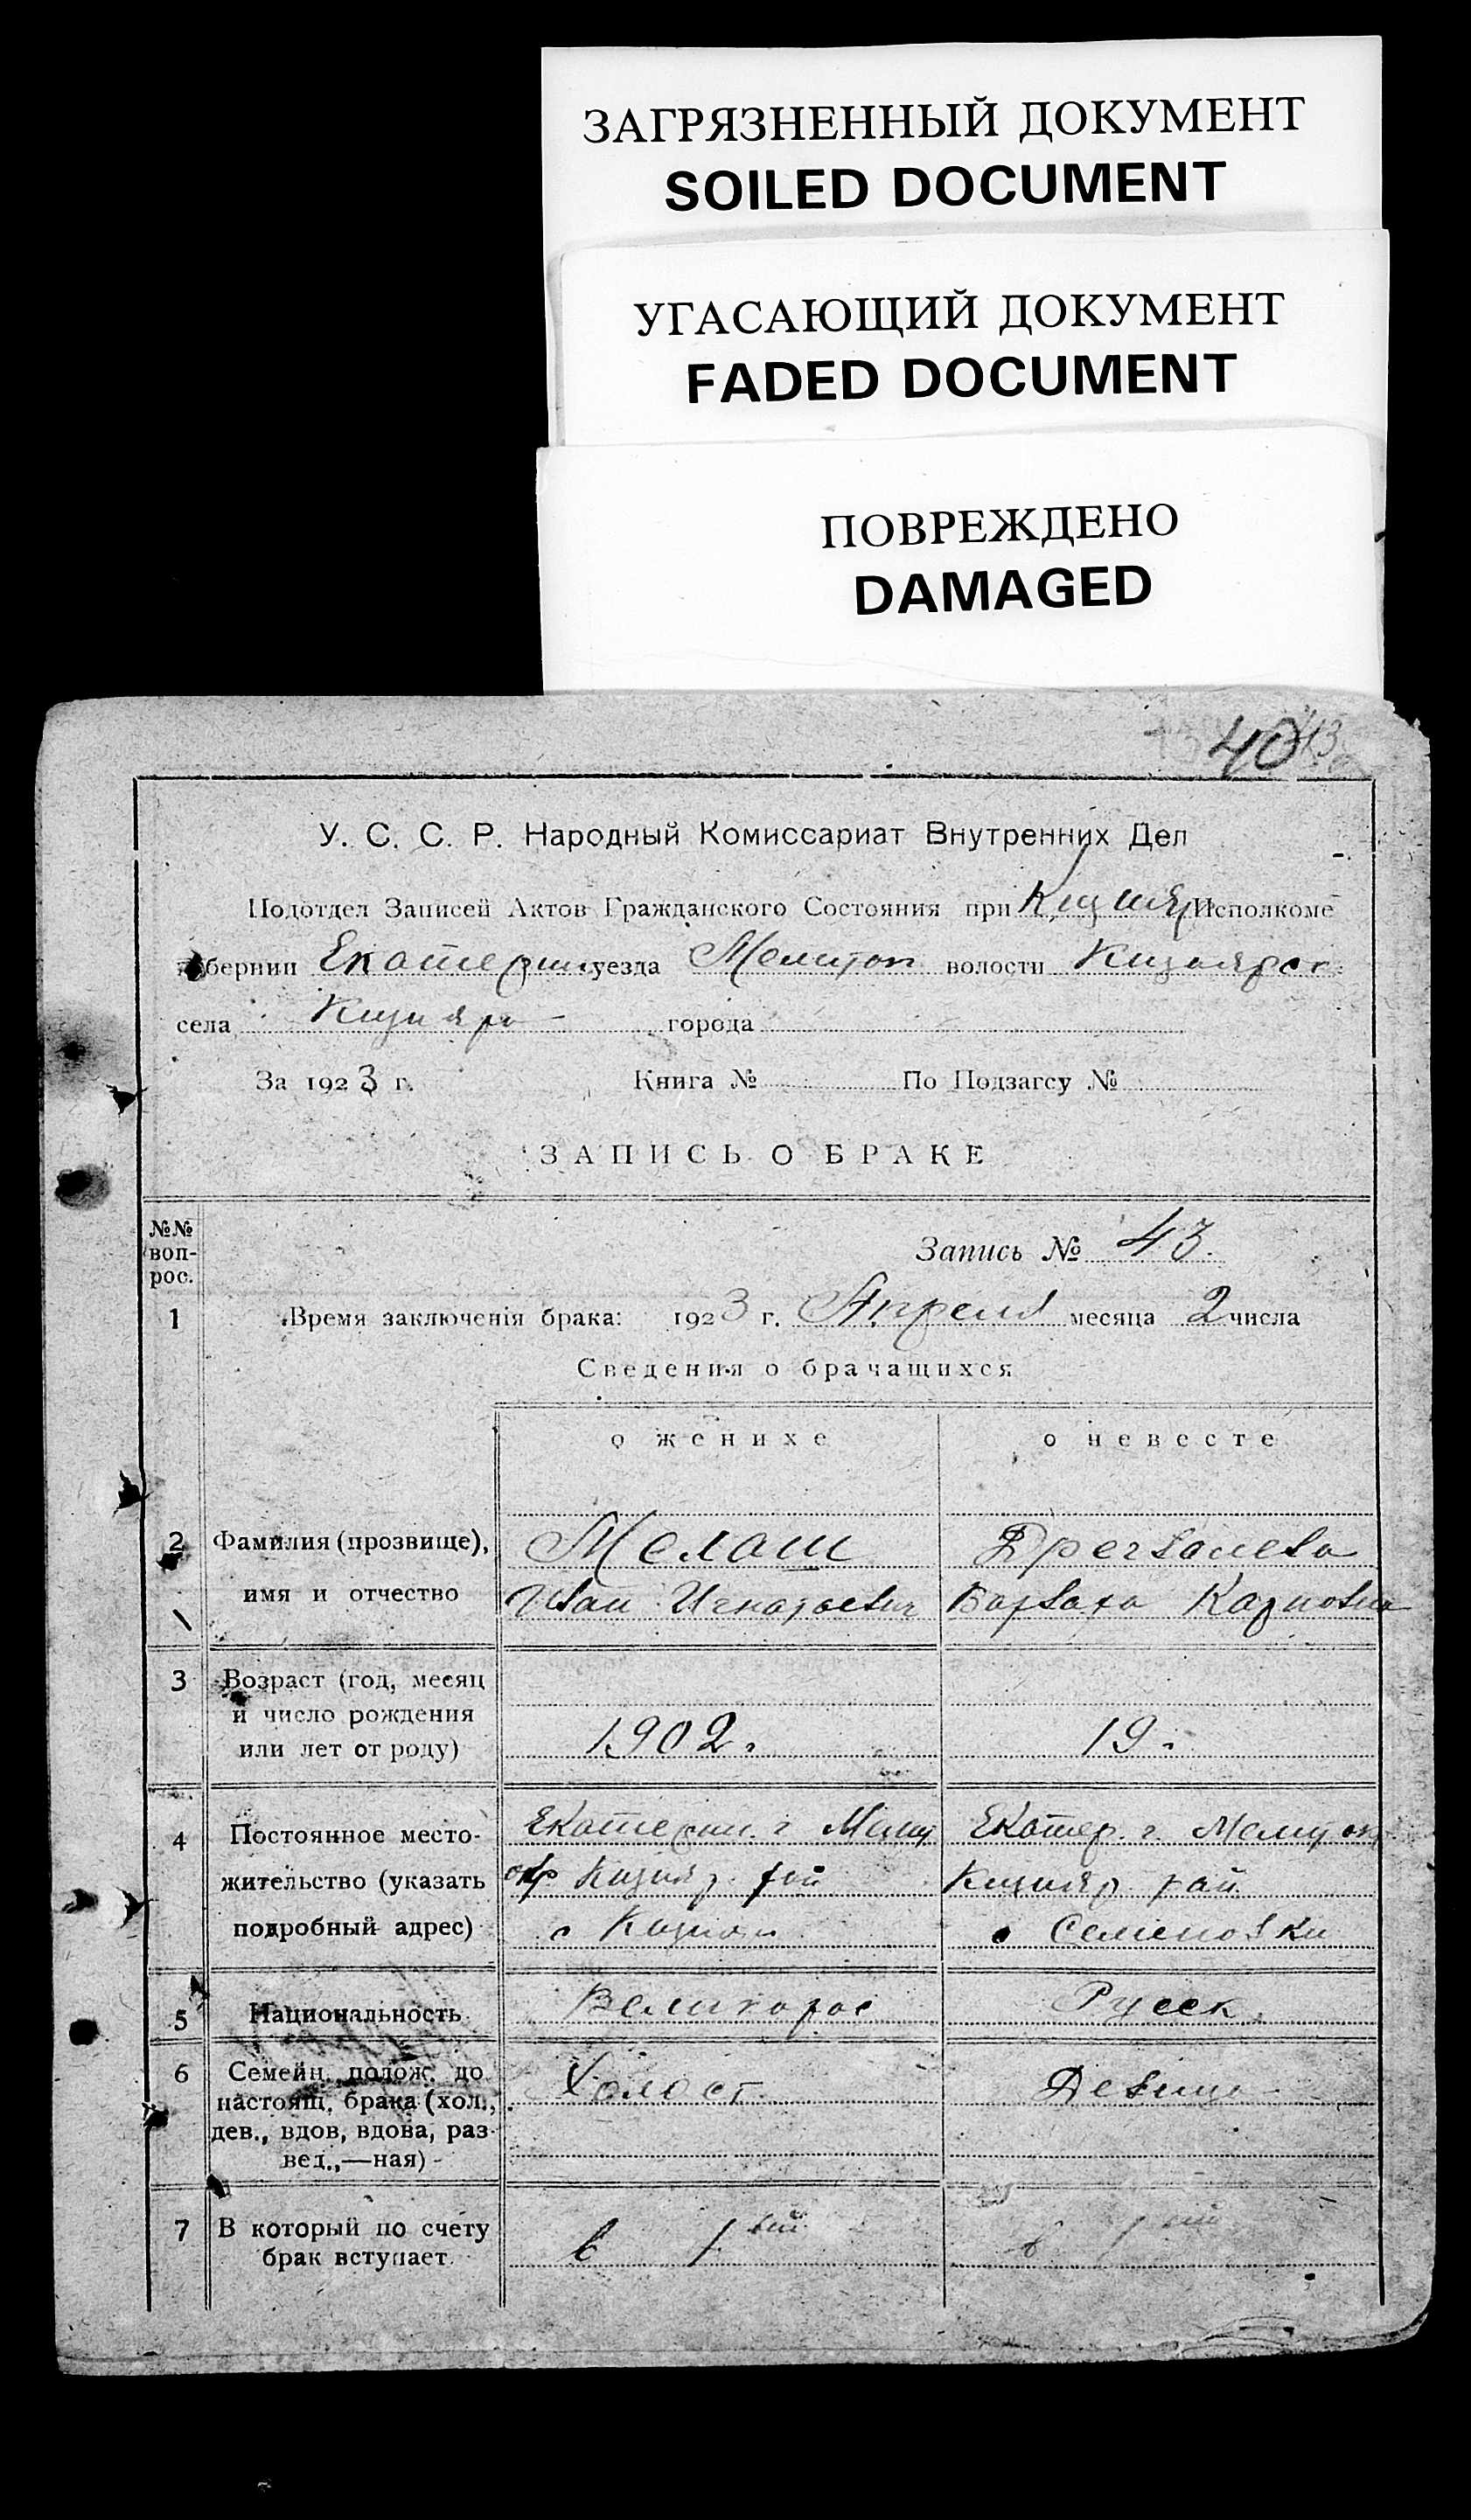 ЗАГРЯЗНЕННЫЙ ДОКУМЕНТ
SOILED DOCUMENT
УГАСАЮЩИЙ ДОКУМЕНТ
FADED DOCUMENT
ПОВРЕЖДЕНО
DAMAGED
40
У. С. С. Р. Народный Комиссариат Внутренних Дел
Подотдел Записей Актов Гражданского Состояния при Кизияр Исполкоме
губернии Екатерин уезда Мелитоп волости Кизиярск
села Кизияр города
За 1923 г. Книга № По Подзагсу №
ЗАПИСЬ О БРАКЕ
№№ воп-рос.
Запись № 43.
1 Время заключенія брака: 1923 г. Апреля месяца 2 числа
Сведения о брачащихся
о женихе о невесте
2 Фамилия (прозвище), Мелаш
имя и отчество Иван Игнатьевич Варвара Карповна
3 Возраст (год, месяц
и число рождения
или лет от роду) 1902. 19.
4 Постоянное место- Екатерин. г Мелит Екатер. г. Мелитоп
жительство (указать окр Кизияр. рай Кизияр рай
подробный адрес) с Кизияр с Семеновки
5 Национальность Великорос Русск.
6 Семейн. полож. до Холост Девица
настоящ. брака (хол.,
дев., вдов, вдова, раз-
вед.,—ная)
7 В который по счету
брак вступает в 1ый в 1ый